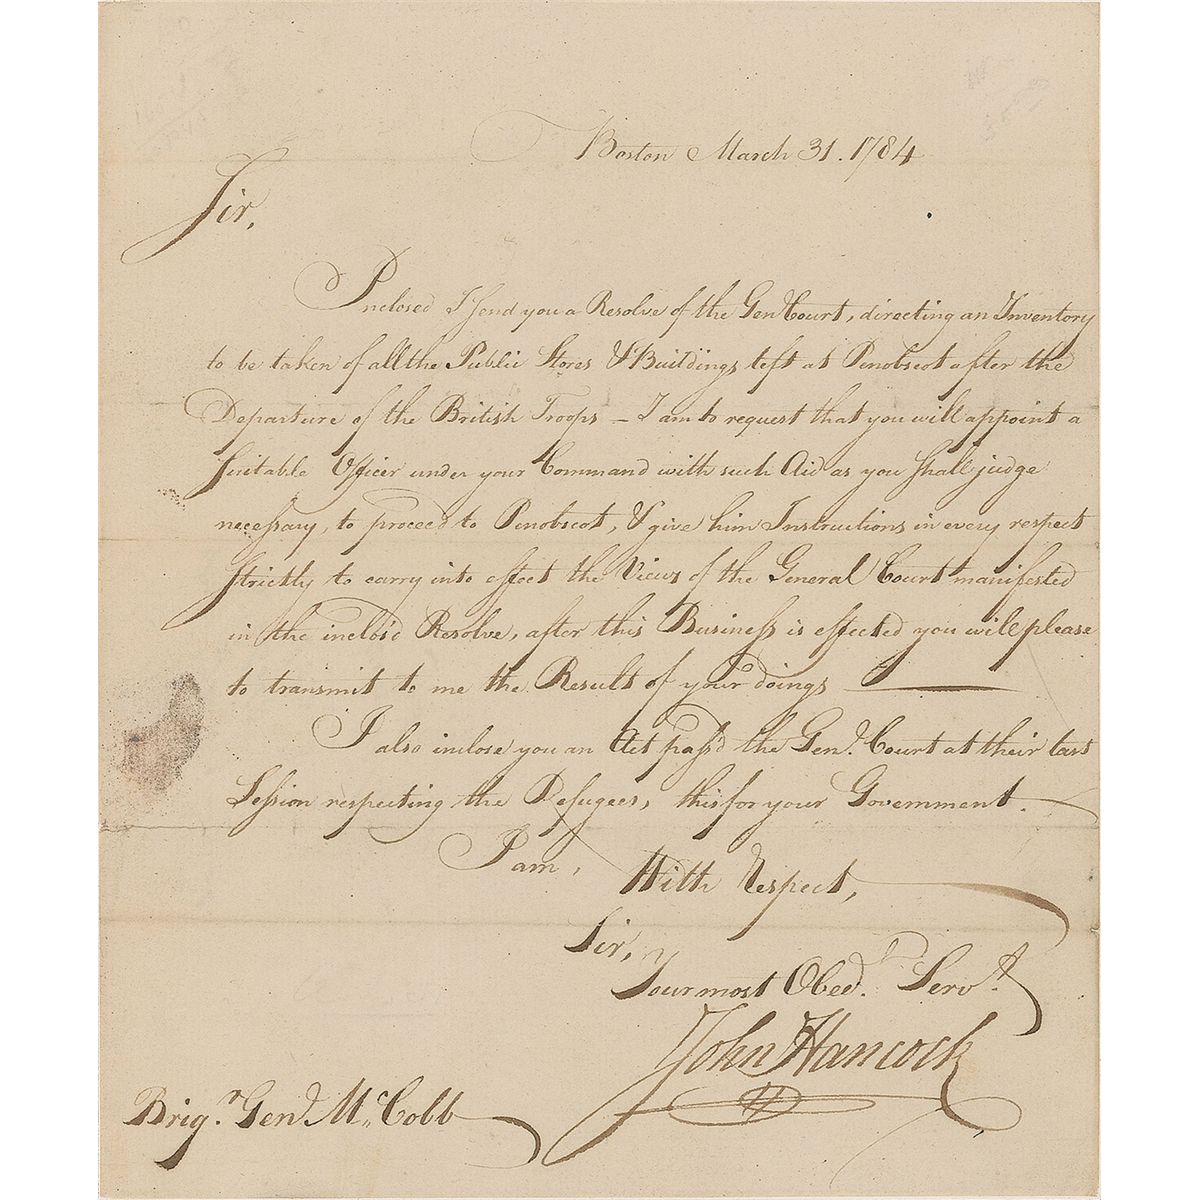 Boston March 31. 1784
Sir,
Inclosed I send you a Resolve of the Gen Court, directing an Inventory
to be taken of all the Public Stores & Buildings left at Penobscot after the
Departure of the British Troops – I am to request that you will appoint a
suitable Officer under your Command with such Aid as you shall judge
necessary, to proceed to Penobscot, & give him Instructions in every respect
strictly to carry into effect the Views of the General Court manifested
in the inclos'd Resolve, after this Business is effected you will please
to transmit to me the Result of your doings ——
I also inclose you an Act pass'd the Genl. Court at their last
Session respecting the Refugees, this for your Government.
I am,
With Respect,
Sir,
Your most Obedt. Servt.
John Hancock
Brigr. Genl. McCobb